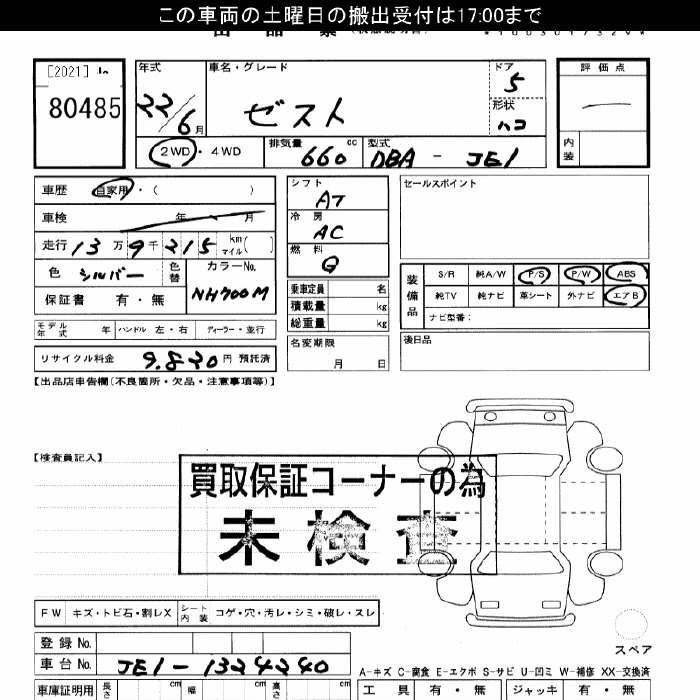 この車両の土曜日の搬出受付は17:00まで
[2021]
80485
年式
22/6月
車名・グレード
ゼスト
ドア
5
形状
ハコ
評価点
内装
2WD・4WD
排気量
660 cc
型式
DBA - JE1
車歴 自家用・( )
車検 年 月
走行 13万9千215 km マイル( )
色 シルバー 色替
カラーNo.
NH700M
保証書 有・無
モデル年式 年 ハンドル 左・右 ディーラー・並行
リサイクル料金 9.820円 預託済
シフト
AT
冷房
AC
燃料
G
乗車定員 名
積載量 kg
総重量 kg
名変期限
月 日
セールスポイント
装備品
S/R 純A/W P/S P/W ABS
純TV 純ナビ 革シート 外ナビ エアB
ナビ型番:
後日品
【出品店申告欄(不良箇所・欠品・注意事項等)】
【検査員記入】
買取保証コーナーの為
未検査
FW キズ・トビ石・割レX シート内装 コゲ・穴・汚レ・シミ・破レ・スレ
登録No.
車台No. JE1-1324240
スペア
A-キズ C-腐食 E-エクボ S-サビ U-凹ミ W-補修 XX-交換済
車庫証明用 長さ cm 幅 cm 高さ cm
工具 有・無 ジャッキ 有・無